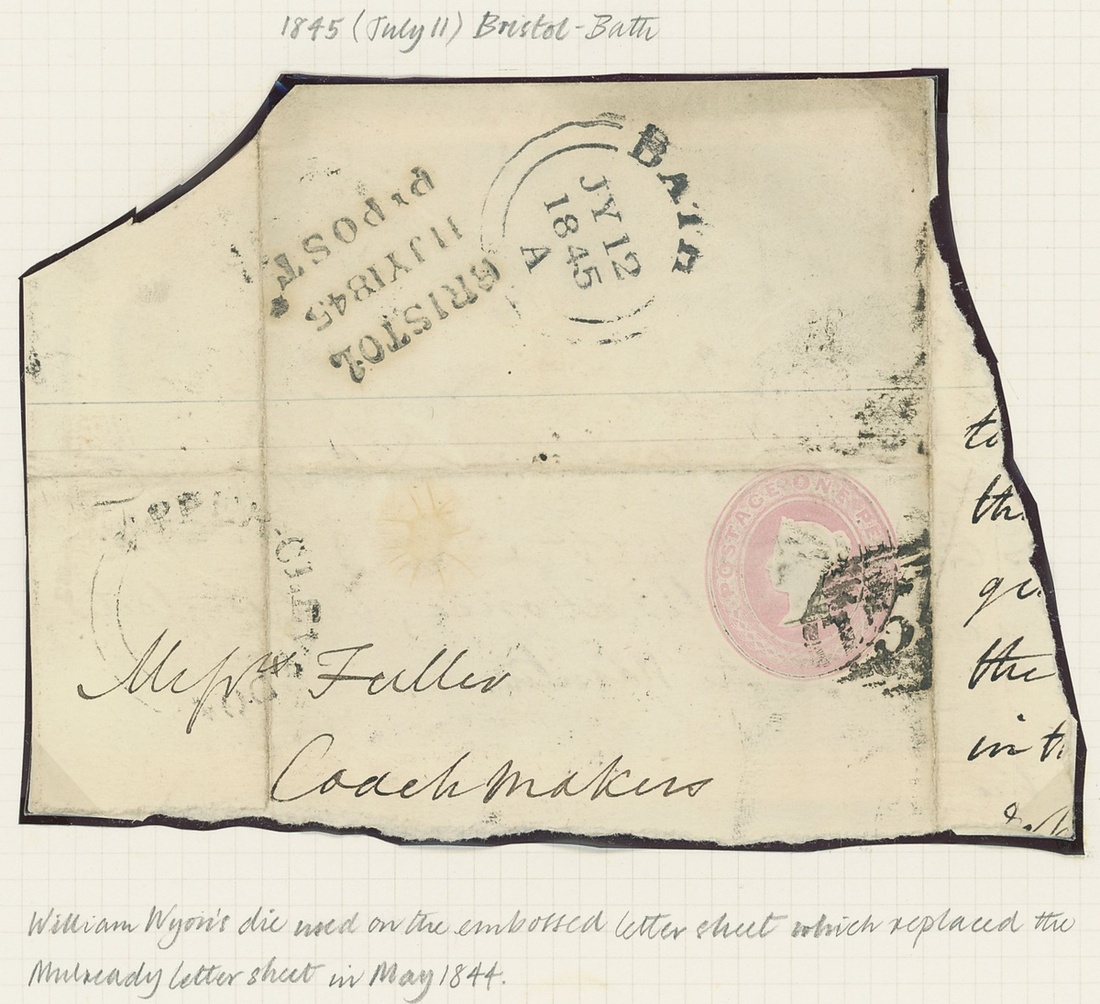 1845 (July 11) Bristol-Bath
BATH
JY 12
1845
A
PY POST
11JY1845
BRISTOL
POSTAGE ONE PE
to
th
the
in t
Messrs Fuller
Coachmakers
William Wyon's die used on the embossed letter sheet which replaced the
Mulready letter sheet in May 1844.